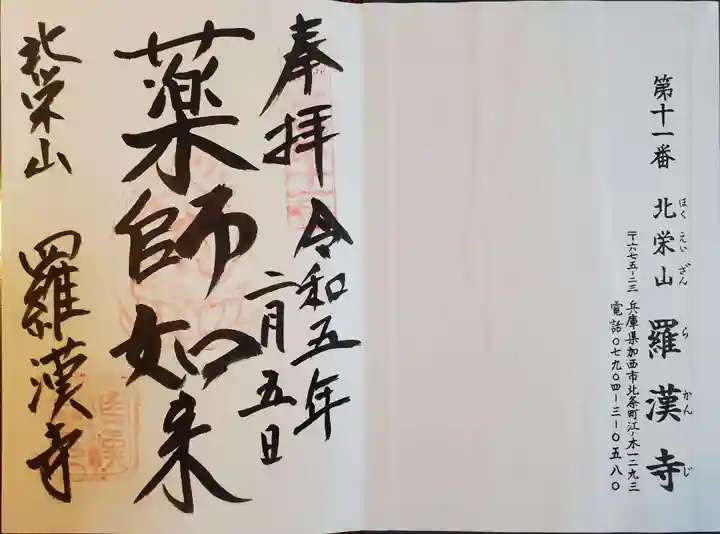 第十一番 北栄山 羅漢寺
ほくえいざん らかんじ
〒六七五-二三 兵庫県加西市北条町江ノ木一二九三
電話〇七九〇四-三-〇五八〇
奉拝 令和五年
二月五日
薬師如来
北栄山 羅漢寺